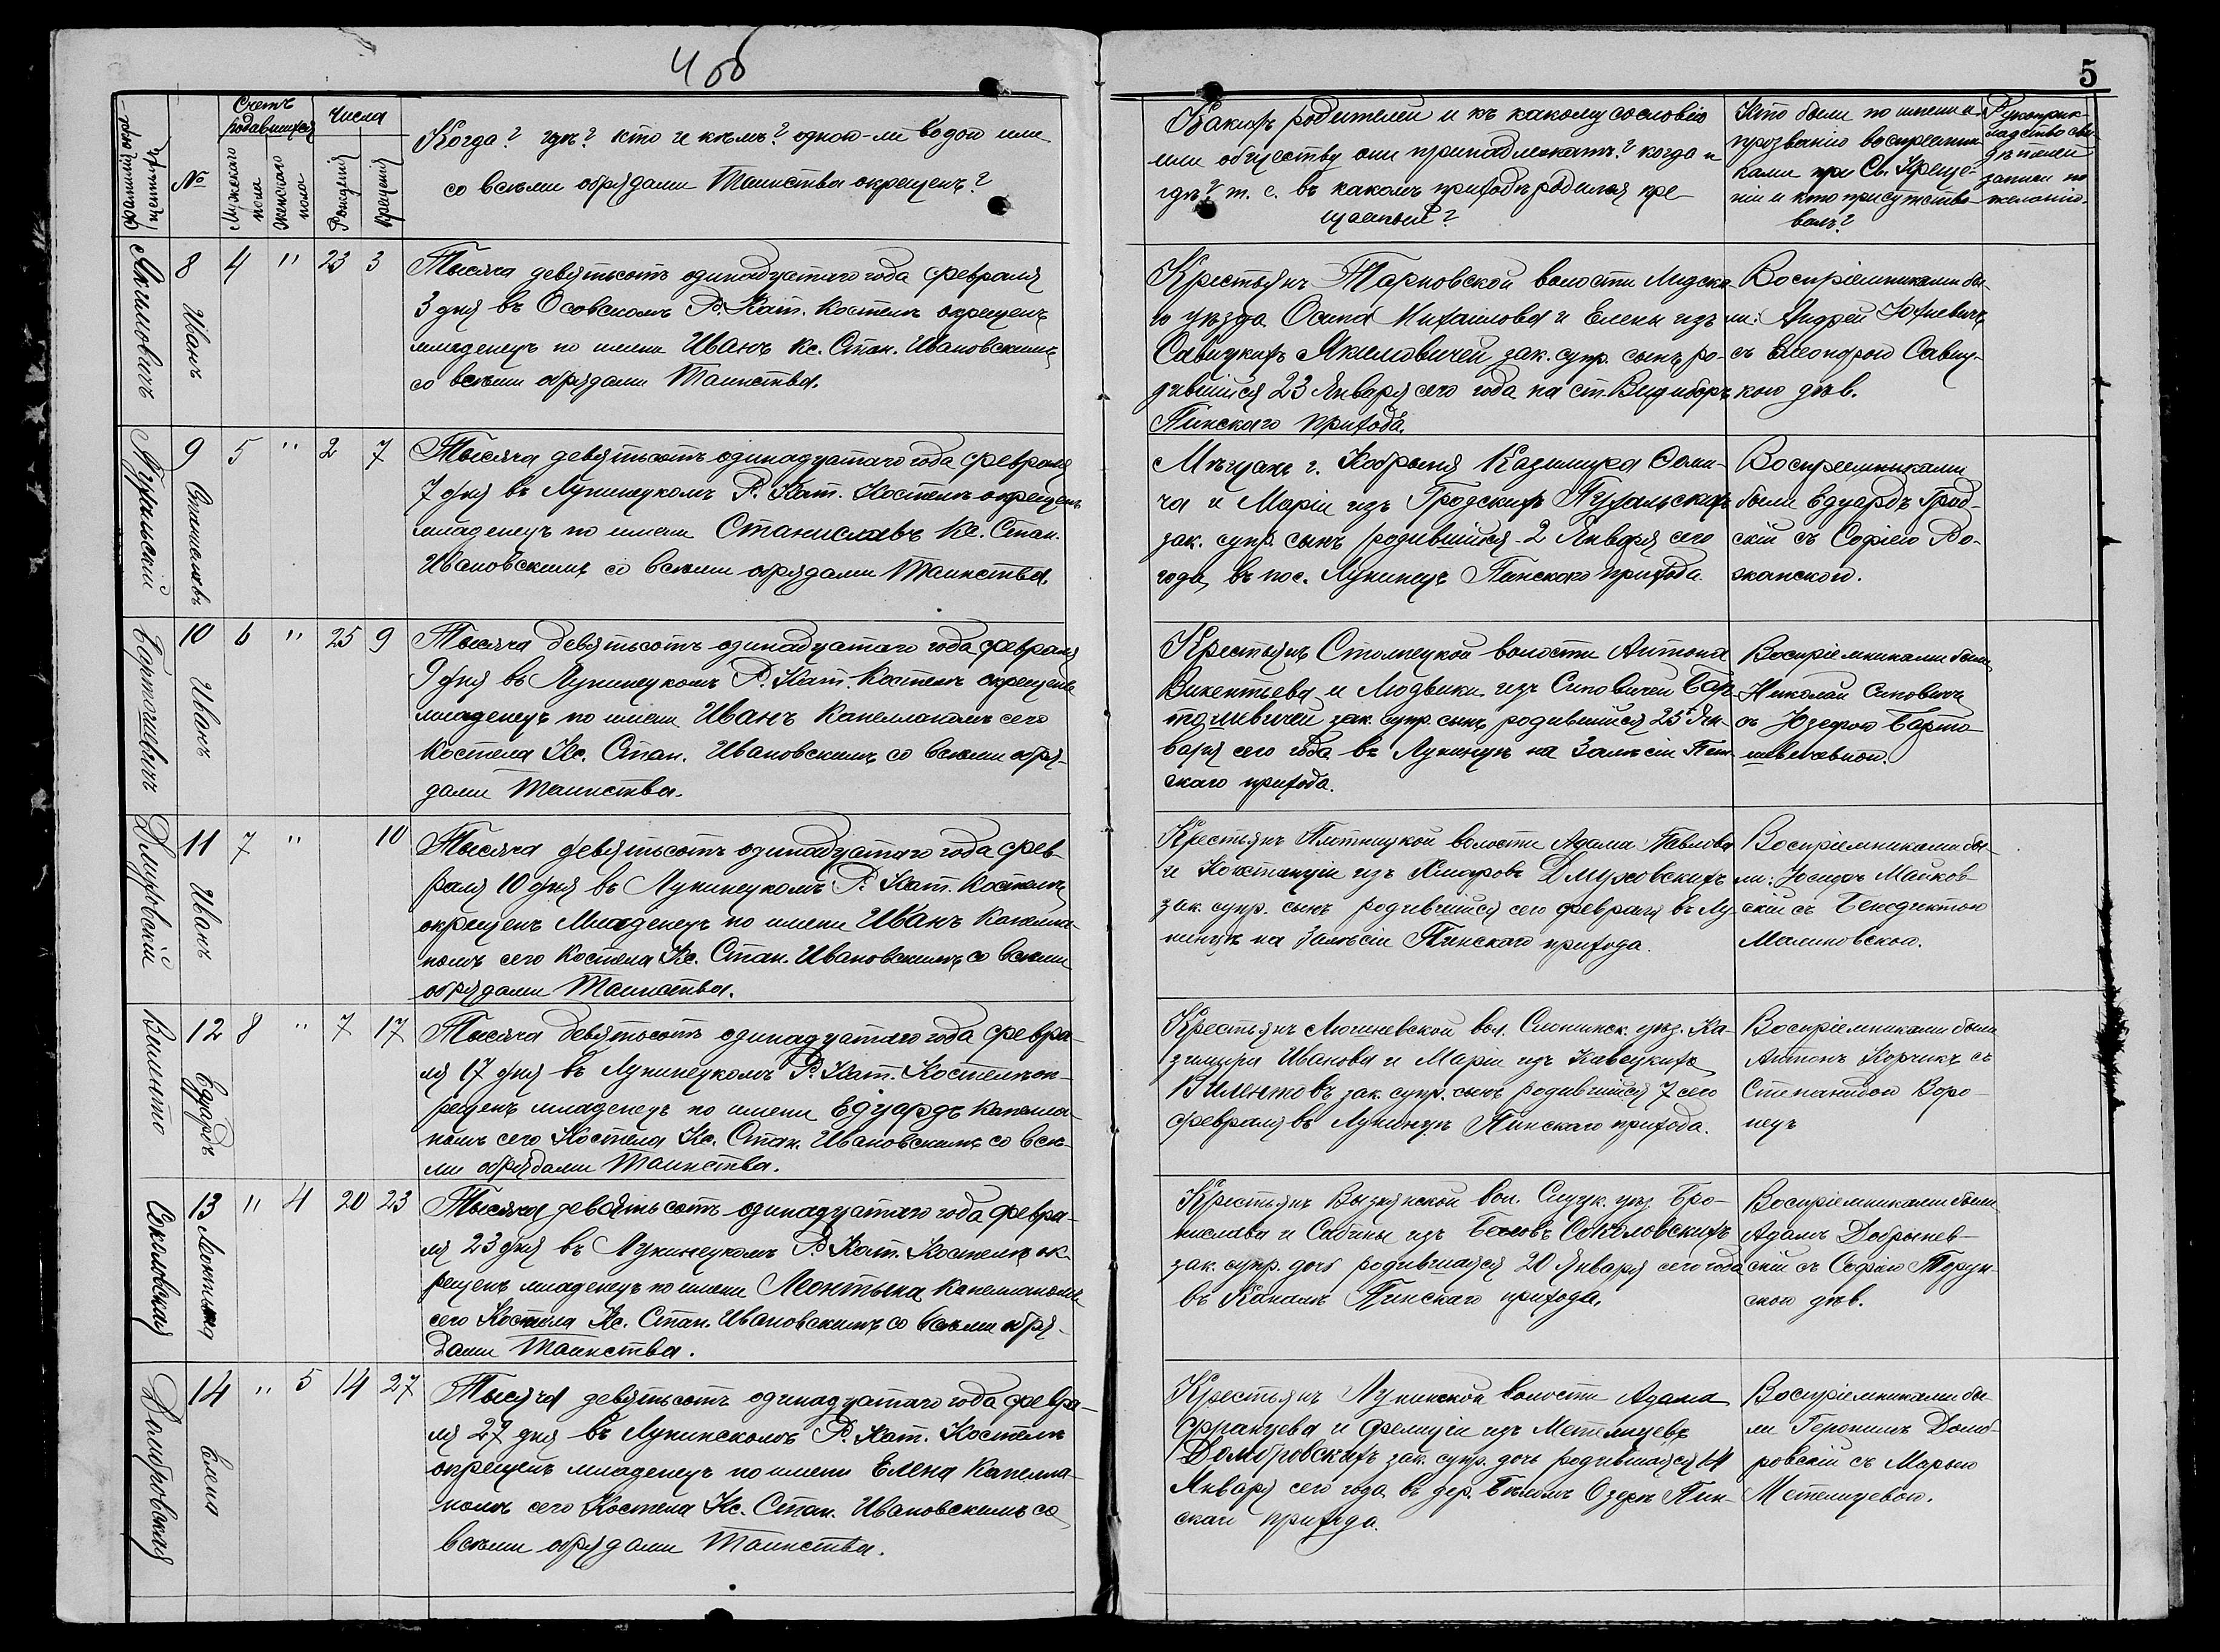 4 об
5
Фамилія крещаемаго
№
Счетъ родавшихся
Мужескаго пола
Женскаго пола
Числа
Рожденія
Крещенія
Когда? гдѣ? кто и кѣмъ? одною-ли водою или
со всѣми обрядами Таинства окрещенъ?
Какихъ родителей и къ какому сословію
или обществу они принадлежатъ? когда и
гдѣ? т. е. въ какомъ приходѣ родился кре-
щаемый?
Кто были по имени и
прозванію воспреемни-
ками при Св. Креще-
ніи и кто присутство-
валъ?
Рукоприк-
ладство сви-
дѣтелей
записи по
желанію.
Якимовичъ
8
Иванъ
4
"
23
3
Тысяча девятьсотъ одинадцатаго года февраля
3 дня въ Осовскомъ Р. Кат. Костелѣ окрещенъ
младенецъ по имени Иванъ Кс. Стан. Ивановскимъ
со всѣми обрядами Таинства.
Крестьянъ Тарновской волости Лидска-
го уѣзда Осипа Михайлова и Елены изъ
Савицкихъ Якимовичей зак. супр. сынъ ро-
дившійся 23 Января сего года на ст. Видиборъ
Пинскаго прихода.
Воспріемниками бы-
ли: Андрей Юхневичъ
съ Елеонорою Савиц-
кою дѣв.
Пузальскій
9
Станиславъ
5
"
2
7
Тысяча девятьсотъ одинадцатаго года февраля
7 дня въ Лунинецкомъ Р. Кат. Костелѣ окрещенъ
младенецъ по имени Станиславъ Кс. Стан.
Ивановскимъ со всѣми обрядами Таинства.
Мѣщанъ г. Кобрыня Казимира Фоми-
ча и Маріи изъ Гродскихъ Пузальскихъ
зак. супр. сынъ родившійся 2 Января сего
года, въ пос. Лунинецъ Пинского прихода
Воспреемниками
были Едуардъ Грод-
скій съ Софіею Ро-
жанскою.
Бартошевичъ
10
Иванъ
6
"
25
9
Тысяча девятьсотъ одинадцатаго года февраля
9 дня въ Лунинецкомъ Р. Кат. Костелѣ окрещенъ
младенецъ по имени Иванъ Капелланомъ сего
Костела Кс. Стан. Ивановскимъ со всѣми обря-
дами Таинства.
Крестьянъ Столпецкой волости Антона
Викентьева и Людвики изъ Сиповичей Бар-
тошевичей зак. супр. сынъ, родившійся 25 Ян-
варя сего года въ Лунинцѣ на Залѣсіи Пин-
скаго прихода.
Воспріемниками были
Николай Сиповичъ
съ Юзефою Барто-
шевичевной.
Дмуховскій
11
Иванъ
7
"
10
Тысяча девятьсотъ одинадцатаго года фев-
раля 10 дня въ Лунинецкомъ Р. Кат. Костелѣ
окрещенъ Младенецъ по имени Иванъ Капелла-
номъ сего Костела Кс. Стан. Ивановскимъ со всѣми
обрядами Таинства.
Крестьянъ Плотницкой волости Адама Павлова
и Констанціи изъ Дмуховскихъ
зак. супр. сынъ родившійся сего февраля въ Лу-
нинцѣ на Залѣсіи Пинскаго прихода.
Воспріемниками бы-
ли: Іосифъ Майков-
скій съ Бенедиктою
Малиновской.
Вилимто
12
Едуардъ
8
"
7
17
Тысяча девятьсотъ одинадцатаго года февра-
ля 17 дня въ Лунинецкомъ Р. Кат. Костелѣ ок-
рещенъ младенецъ по имени Едуардъ Капелла-
номъ сего Костела Кс. Стан. Ивановскимъ со всѣ-
ми обрядами Таинства.
Крестьянъ вол. Слонимск. уѣз. Ка-
зимира Иванова и Маріи изъ Кавецкихъ
зак. супр. сынъ родившійся 7 сего
февраля въ Лунинцѣ Пинскаго прихода.
Воспріемниками были
Антонъ Корчикъ съ
Степанидой Воро-
нецъ
Соколовская
13
Леонтина
"
4
20
23
Тысяча девятьсотъ одинадцатаго года февра-
ля 23 дня въ Лунинецкомъ Р. Кат. Костелѣ ок-
рещенъ младенецъ по имени Леонтына Капелланомъ
сего Костела Кс. Стан. Ивановскимъ со всѣми обря-
дами Таинства.
Крестьянъ Вызнянской вол. Слуцк. уѣз. Бро-
нислава и Сабины изъ Соколовскихъ
зак. супр. дочь родившаяся 20 Января сего года
въ Каналѣ Пинскаго прихода.
Воспріемниками были
Адамъ Добрынев-
скій съ Софіею Торун-
ской дѣв.
Домбровская
14
Елена
"
5
14
27
Тысяча девятьсотъ одинадцатаго года февра-
ля 27 дня въ Лунинскомъ Р. Кат. Костелѣ
окрещенъ младенецъ по имени Елена Капелла-
номъ сего Костела Кс. Стан. Ивановскимъ со
всѣми обрядами Таинства.
Крестьянъ Лунинской волости Адама
Францева и Фелиціи изъ Метелицевъ
Домбровскихъ зак. супр. дочь родившаяся 14
Января сего года въ дер. Бѣломъ Озерѣ Пин-
скаго прихода.
Воспріемниками бы-
ли Геронимъ Домб-
ровскій съ Марью
Метелицевой.